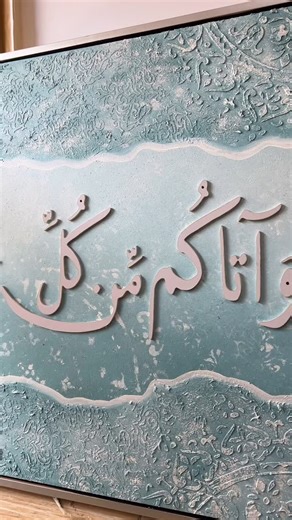 وَآتَاكُم مِّن كُلِّ